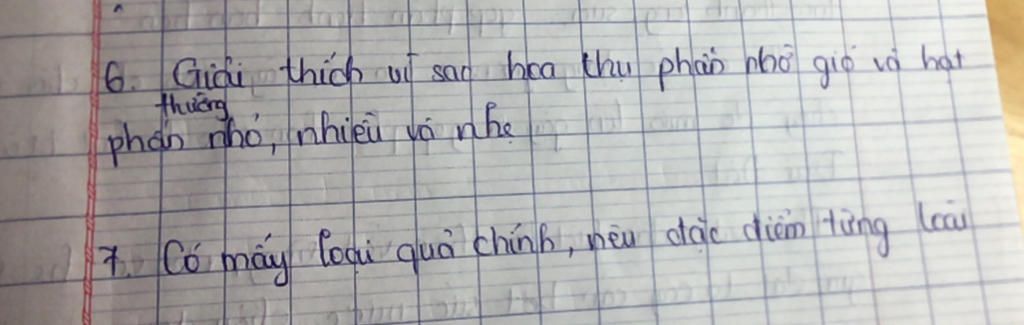 6. Giải thích vì sao hoa thụ phấn nhờ gió có hạt
thường
phấn nhỏ, nhiều và nhẹ
7. Có mấy loại quả chính, nêu đặc điểm từng loại